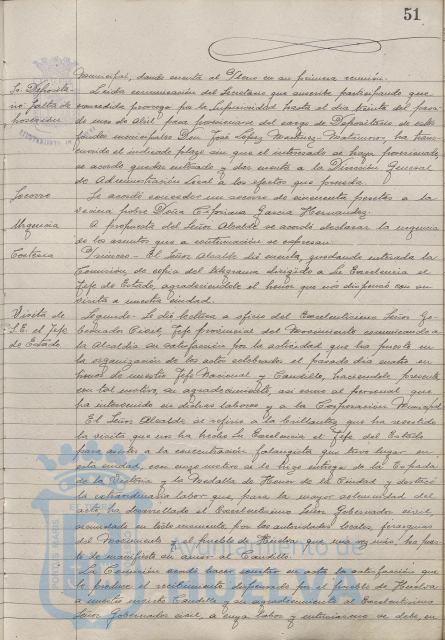 51
Municipal, dando cuenta al Pleno en su primera reunión.
Sr. Deposita- Leída comunicación del Secretario que suscribe participando que
rio falta de concedida prórroga por la Superioridad hasta el día treinta del pasa-
posesión do mes de Abril, para posesionarse del cargo de Depositario de estos
fondos municipales Don José López Martínez, ha trans-
currido el indicado plazo sin que el interesado se haya posesionado,
se acordó quedar enterado y dar cuenta a la Dirección General
de Administración Local a los efectos que proceda.
Socorro Se acordó conceder un socorro de cincuenta pesetas a la
vecina pobre Doña García Hernández.
Urgencia A propuesta del Señor Alcalde se acordó declarar la urgencia
de los asuntos que a continuación se expresan.
Cortesía Primero.- El Señor Alcalde dió cuenta, quedando enterada la
Comisión, de copia del telegrama dirigido a Su Excelencia el
Jefe de Estado, agradeciéndole el honor que nos dispensó con su
visita a nuestra Ciudad.
Visita de Segundo.- Se dió lectura a oficio del Excelentísimo Señor Go-
S.E. el Jefe bernador Civil, Jefe provincial del Movimiento comunicando a
de Estado la Alcaldía su satisfacción por la actividad que ha puesto en
la organización de los actos celebrados el pasado día cuatro en
honor de nuestro Jefe Nacional y Caudillo, haciendole presente
con tal motivo, su agradecimiento, así como al personal que
ha intervenido en dichas labores y a la Corporación Municipal
El Señor Alcalde se refirió a la brillantez que ha revestido
la visita que nos ha hecho Su Excelencia el Jefe del Estado
para asistir a la concentración falangista que tuvo lugar en
esta ciudad, con cuyo motivo se le hizo entrega de la Espada
de la Victoria y la Medalla de Honor de la Ciudad y destacó
la extraordinaria labor que, para la mayor solemnidad del
acto ha desarrollado el Excelentísimo Señor Gobernador civil,
secundado en todo momento por las autoridades locales, jerarquías
del Movimiento y el pueblo de Huelva que una vez más, ha pues-
to de manifiesto su amor al Caudillo.
La Comisión acordó hacer constar en acta la satisfacción que
le produce el recibimiento dispensado por el pueblo de Huelva
a nuestro invicto Caudillo y su agradecimiento al Excelentísimo
Señor Gobernador civil, a cuya labor y entusiasmo se debe, en